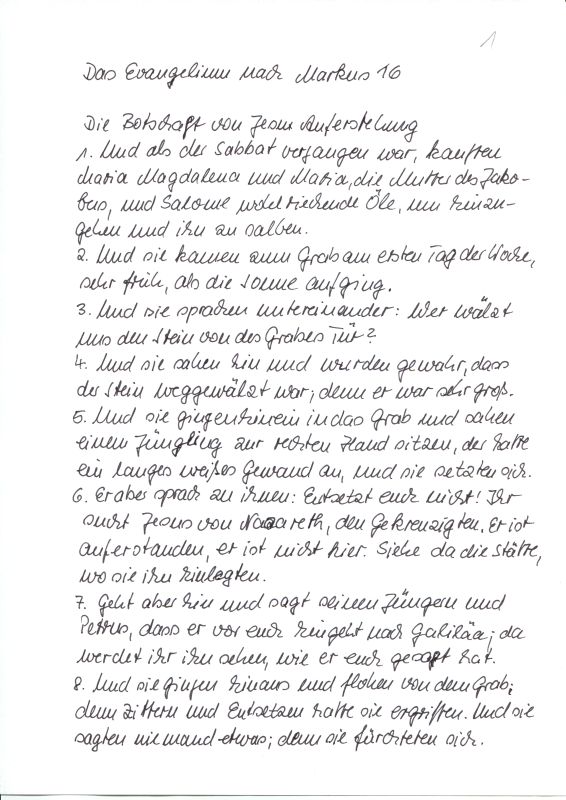 1
Das Evangelium nach Markus 16
Die Botschaft von Jesu Auferstehung
1. Und als der Sabbat vergangen war, kauften
Maria Magdalena und Maria, die Mutter des Jako-
bus, und Salome wohlriechende Öle, um hinzu-
gehen und ihn zu salben.
2. Und sie kamen zum Grab am ersten Tag der Woche,
sehr früh, als die Sonne aufging.
3. Und sie sprachen untereinander: Wer wälzt
uns den Stein von des Grabes Tür?
4. Und sie sahen hin und wurden gewahr, dass
der Stein weggewälzt war; denn er war sehr groß.
5. Und sie gingen hinein in das Grab und sahen
einen Jüngling zur rechten Hand sitzen, der hatte
ein langes weißes Gewand an, und sie setzten sich.
6. Er aber sprach zu ihnen: Entsetzt euch nicht! Ihr
sucht Jesus von Nazareth, den Gekreuzigten. Er ist
auferstanden, er ist nicht hier. Siehe da die Stätte,
wo sie ihn hinlegten.
7. Geht aber hin und sagt seinen Jüngern und
Petrus, dass er vor euch hingeht nach Galiläa; da
werdet ihr ihn sehen, wie er euch gesagt hat.
8. Und sie gingen hinaus und flohen von dem Grab;
denn Zittern und Entsetzen hatte sie ergriffen. Und sie
sagten niemand etwas; denn sie fürchteten sich.